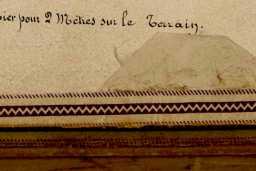 pier pour 2 Mètres sur le Terrain.